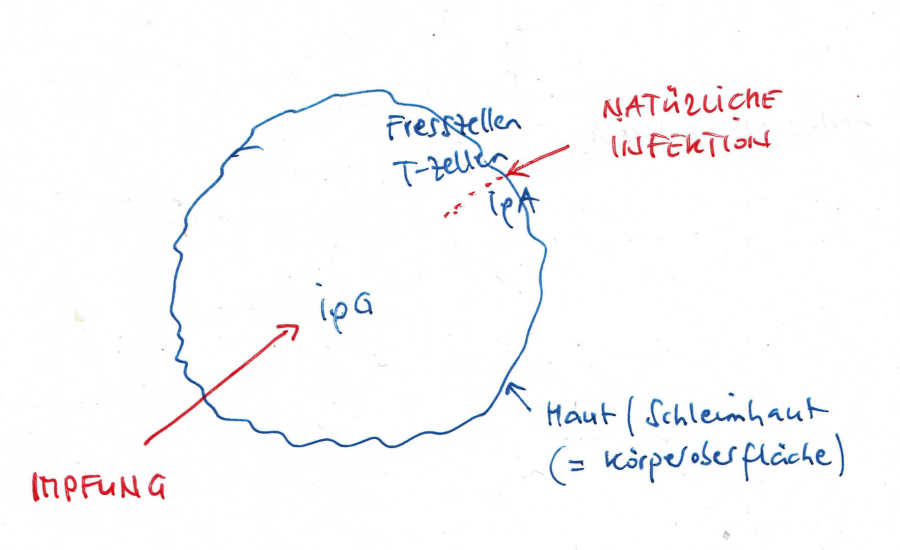 Fresszellen
T-Zellen
NATÜRLICHE
INFEKTION
ipA
ipG
Haut / Schleimhaut
(= Körperoberfläche)
IMPFUNG